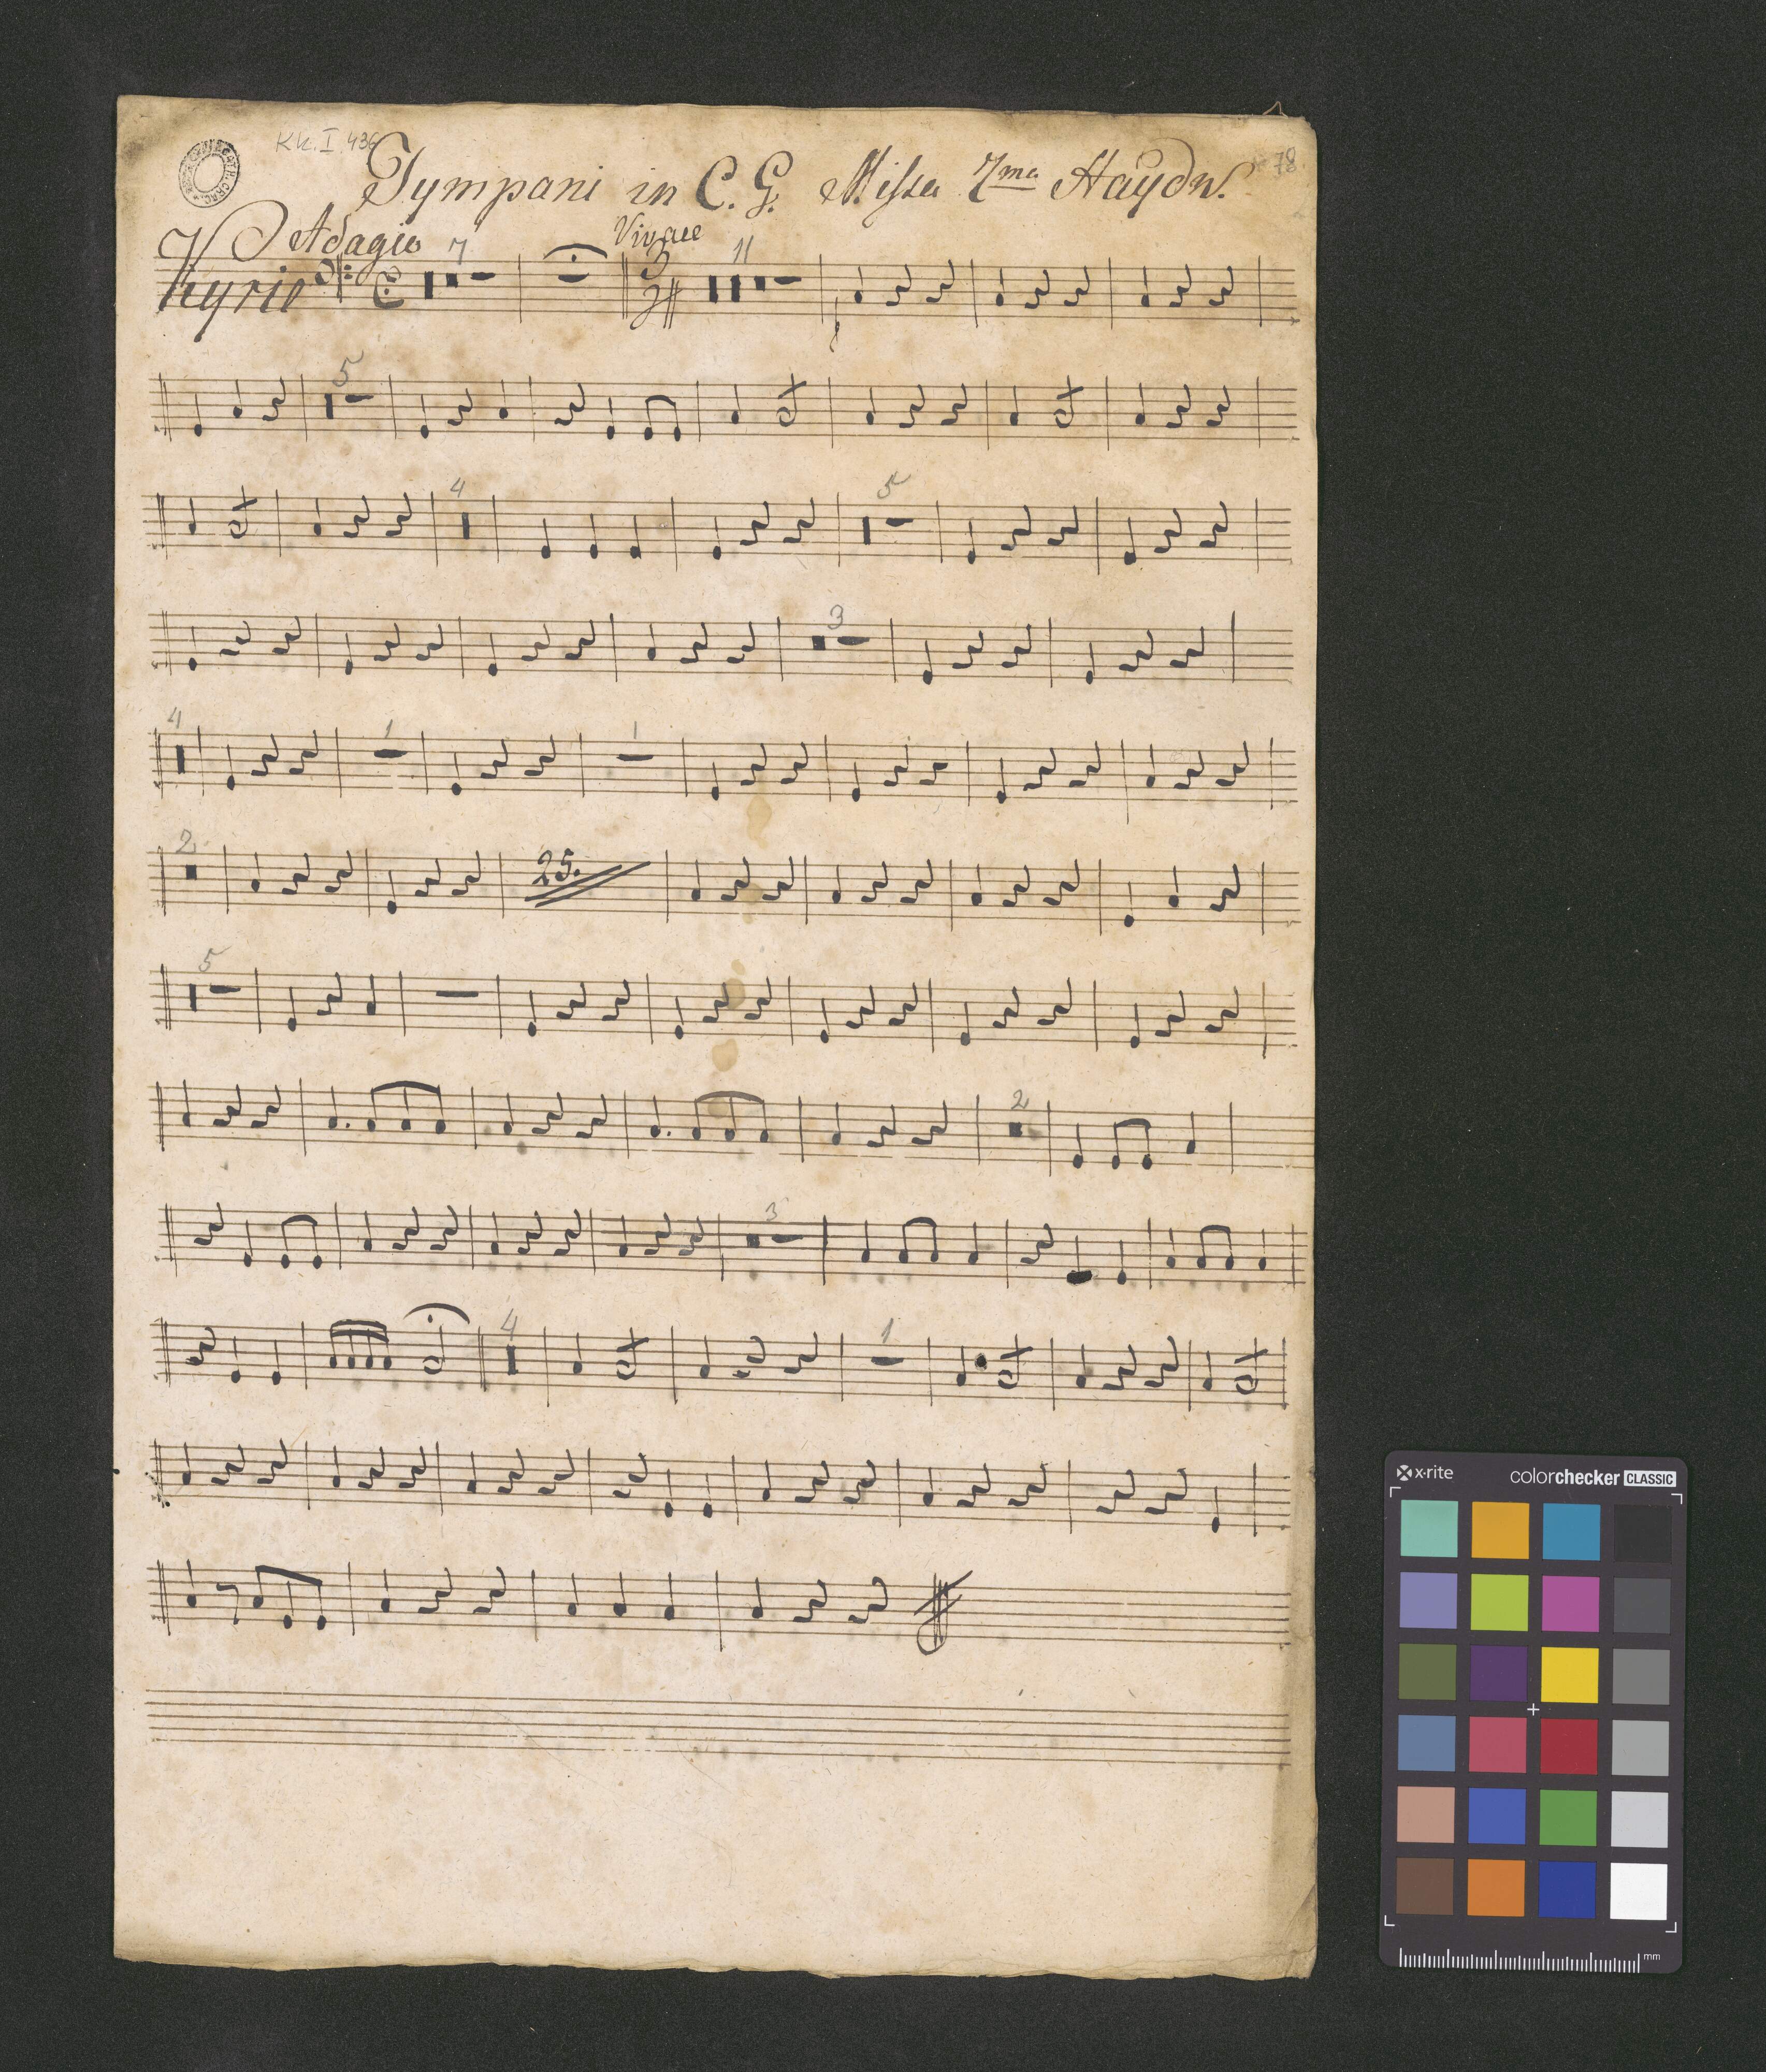 KK. I. 436
78
Tympani in C. G. Missa 7ma Haydn.
Adagio 7 Vivace 11
Kyrie 3
5
4 5
3
4 1 1
2 25.
5
2
3
4 1
x-rite colorchecker CLASSIC
mm